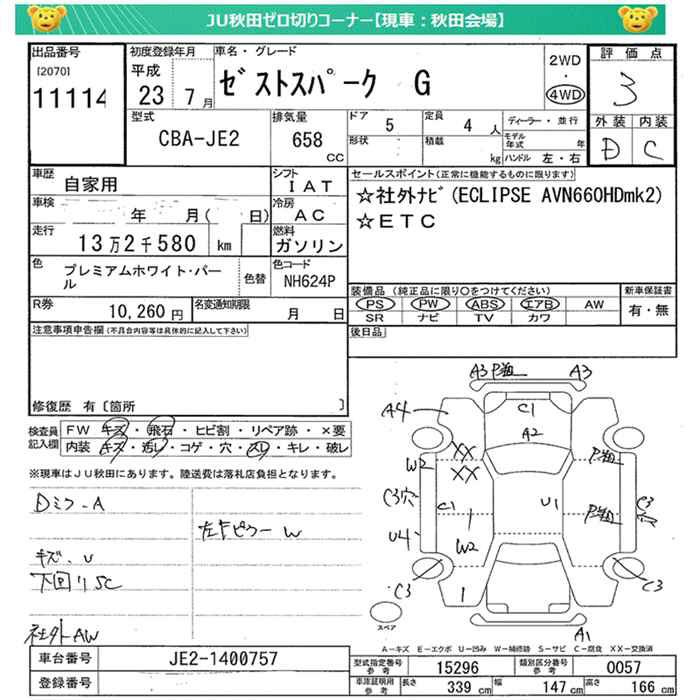 JU秋田ゼロ切りコーナー【現車：秋田会場】
出品番号
[2070]
11114
初度登録年月
平成
23 7月
車名・グレード
ｾﾞｽﾄｽﾊﾟｰｸ G
2WD
・
4WD
評価点
3
外装 内装
D C
型式
CBA-JE2
排気量
658
CC
ドア
5
定員
4 人
形状
積載
kg
ディーラー・並行
モデル年式 年
ハンドル 左・右
車歴
自家用
シフト
IAT
車検
年 月( 日)
冷房
AC
走行
13万2千580 km
燃料
ガソリン
色
プレミアムホワイト・パール
色替
色コード
NH624P
R券
10,260円
名変通知期限
月 日
セールスポイント(正常に機能するものに限ります)
☆社外ﾅﾋﾞ(ECLIPSE AVN660HDmk2)
☆ETC
装備品 (純正品に限り○をつけてください)
PS PW ABS エアB AW
SR ナビ TV カワ
新車保証書
有・無
後日品
注意事項申告欄(不具合内容等は具体的に記入して下さい)
修復歴 有〔箇所 〕
検査員記入欄
FW キズ・飛石・ヒビ割・リペア跡・×要
内装 キズ・汚レ・コゲ・穴・スレ・キレ・破レ
※現車はJU秋田にあります。陸送費は落札店負担となります。
Dミラ-A
左Fピラー W
キズ、U
下回りSC
社外AW
A3 P跡 A3
A4
C1
A2
XX
XX
P跡
W2
C3穴
C1
U1
P跡
C3
穴
U4
W2
C3
C3
A1
スペア
A－キズ E－エクボ U－凹み W－補修跡 S－サビ C－腐食 XX－交換済
車台番号
JE2-1400757
登録番号
型式指定番号
参考
15296
類別区分番号
参考
0057
車庫証明用
参考
長さ 339 cm
幅 147 cm
高さ 166 cm